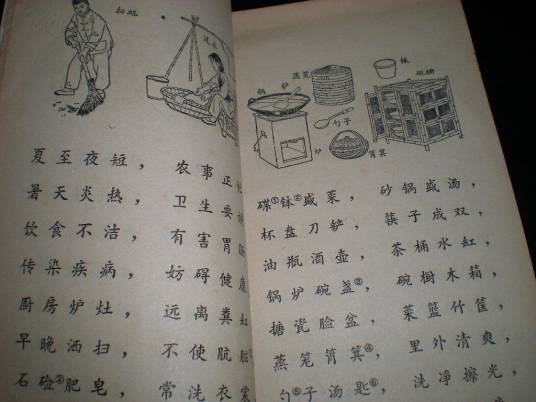 扫地
夏至夜短， 农事正
暑天炎热， 卫生要
饮食不洁， 有害胃肠
传染疾病， 妨碍健康
厨房炉灶， 远离粪缸
早晚洒扫， 不使肮脏
石硷②肥皂， 常洗衣裳
锅 铲 蒸笼 钵 碗橱
勺子
炉 筲箕
碟①钵②盛菜， 砂锅盛汤，
杯盘刀铲， 筷子成双，
油瓶酒壶， 茶桶水缸，
锅炉碗盏③， 碗橱木箱，
搪瓷脸盆， 菜篮什筐，
蒸笼筲箕④， 里外清爽，
勺⑤子汤匙⑥， 洗净擦光，